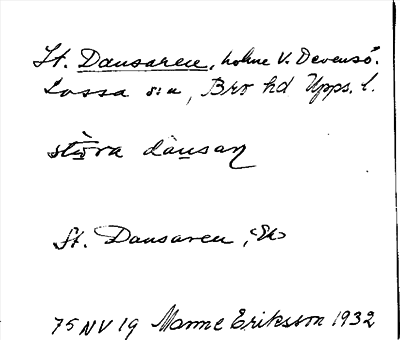 St. Dansaren, holme V. Devensö.
Lossa sn, Bro hd Upps. l.
stòra dànsaṇ
St. Dansaren, Ek
75 NV 19 Manne Eriksson 1932